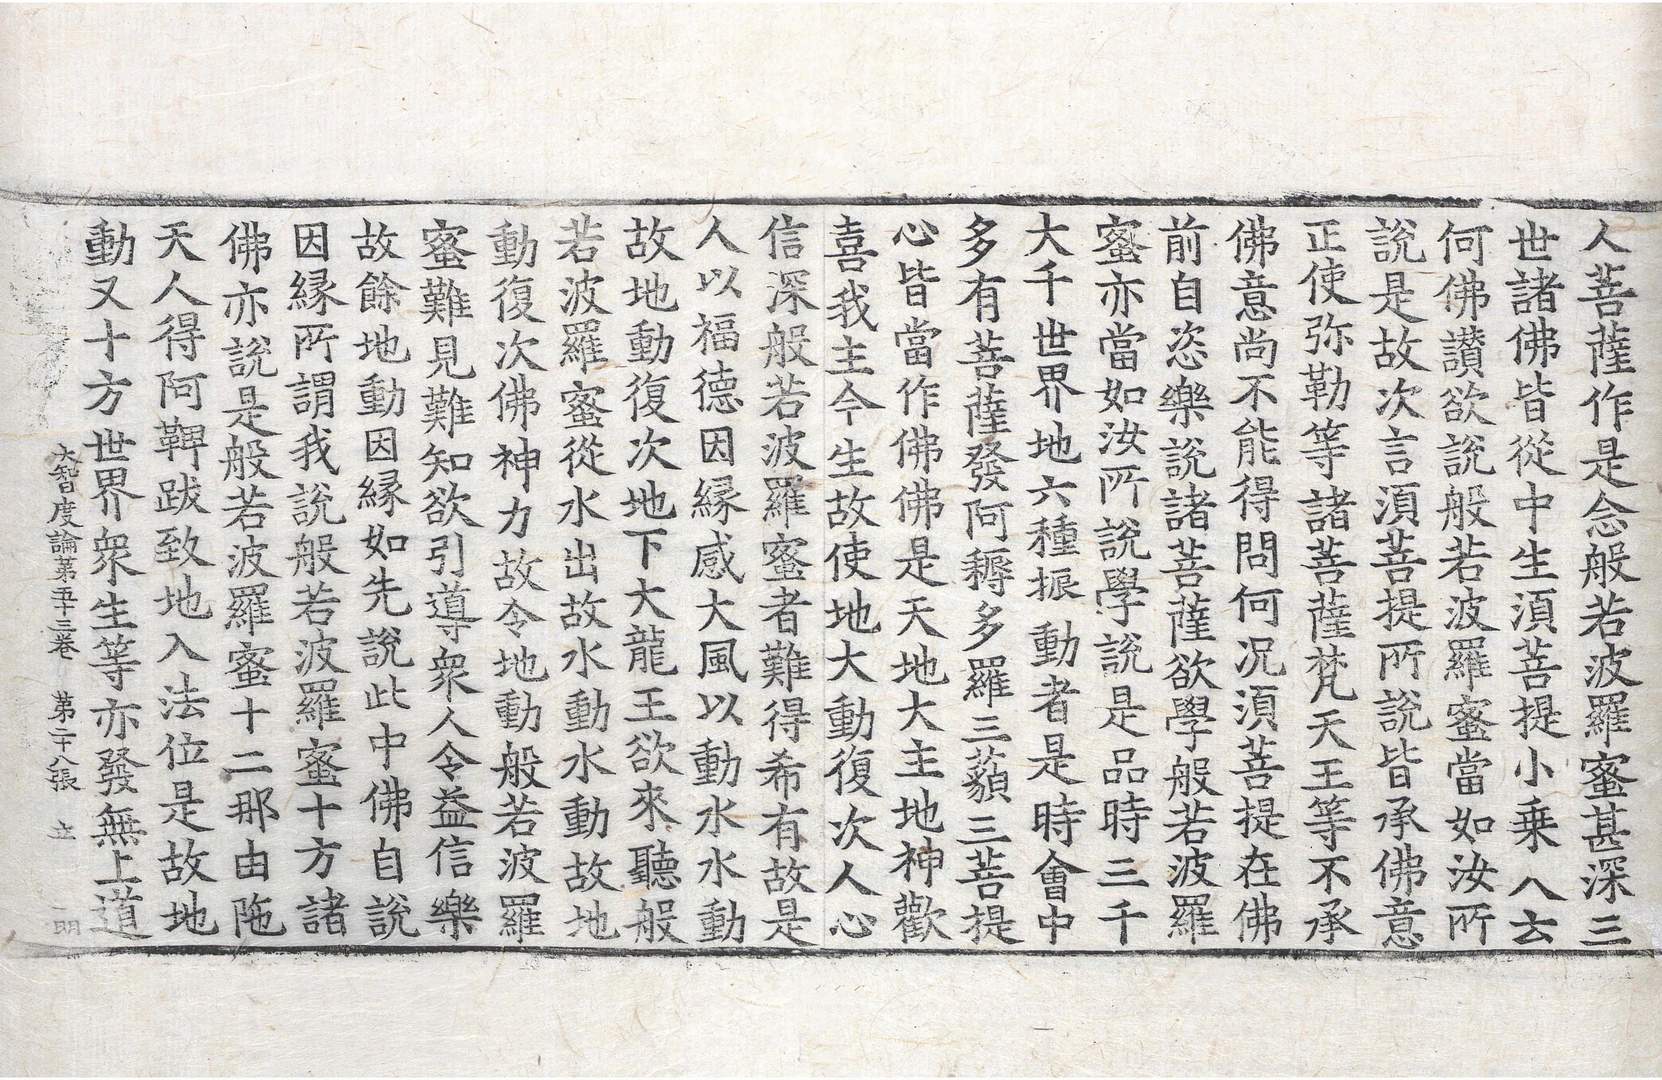 人菩薩作是念般若波羅蜜甚深三
世諸佛皆從中生湏菩提小乗人云
何佛讃欲説般若波羅蜜當如汝所
説是故次言湏菩提所説皆承佛意
正使弥勒等諸菩薩梵天王等不承
佛意尚不能得問何况湏菩提在佛
前自恣樂説諸菩薩欲學般若波羅
蜜亦當如汝所說學説是品時三千
大千世界地六種振動者是時會中
多有菩薩發阿耨多羅三藐三菩提
心皆當作佛佛是天地大主地神歡
喜我主今生故使地大動復次人心
信深般若波羅蜜者難得希有故是
人以福德因緣感大風以動水水動
故地動復次地下大龍王欲來聽般
若波羅蜜從水出故水動水動故地
動復次佛神力故令地動般若波羅
蜜難見難知欲引導衆人令益信樂
故餘地動因緣如先説此中佛自說
因緣所謂我說般若波羅蜜十方諸
佛亦說是般若波羅蜜十二那由陁
天人得阿鞞跋致地入法位是故地
動又十方世界衆生等亦發無上道
大智度論第五十三卷 第二十八張 立 明